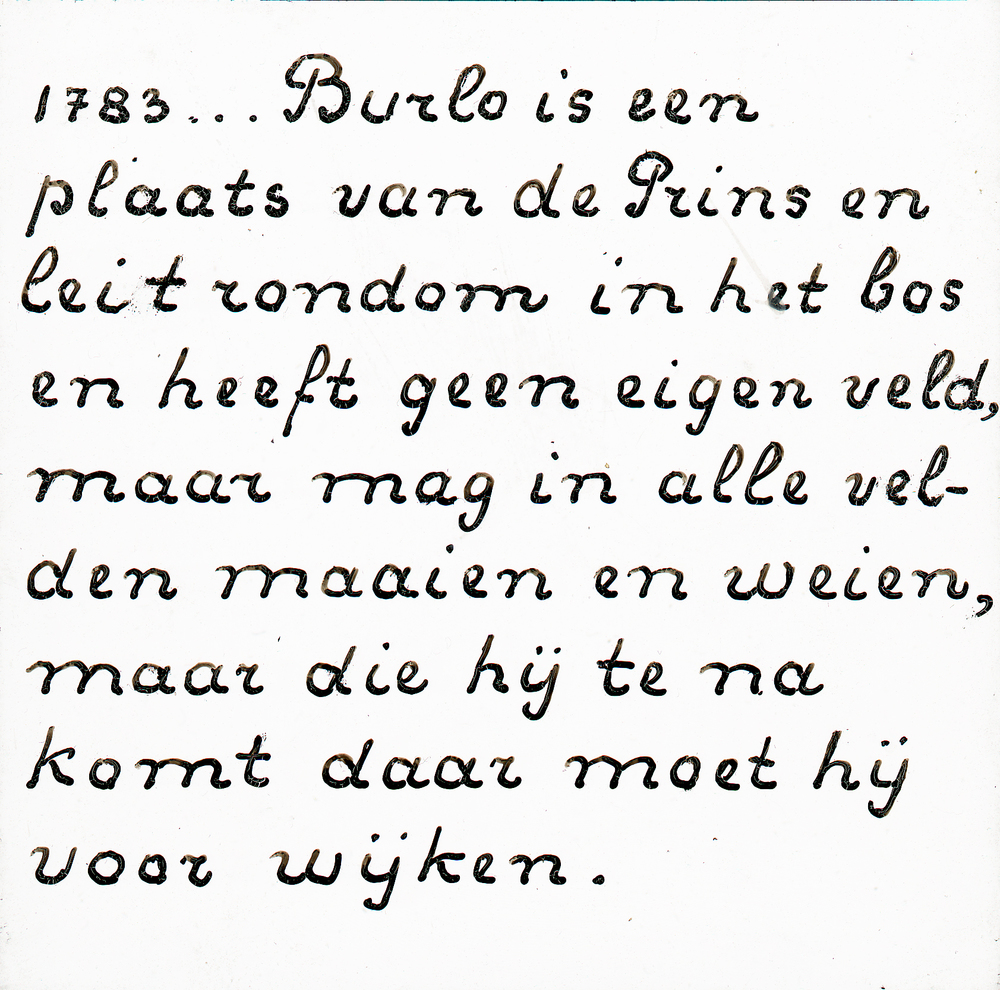 1783... Burlo is een
plaats van de Prins en
leit rondom in het bos
en heeft geen eigen veld,
maar mag in alle vel-
den maaien en weien,
maar die hij te na
komt daar moet hij
voor wijken.